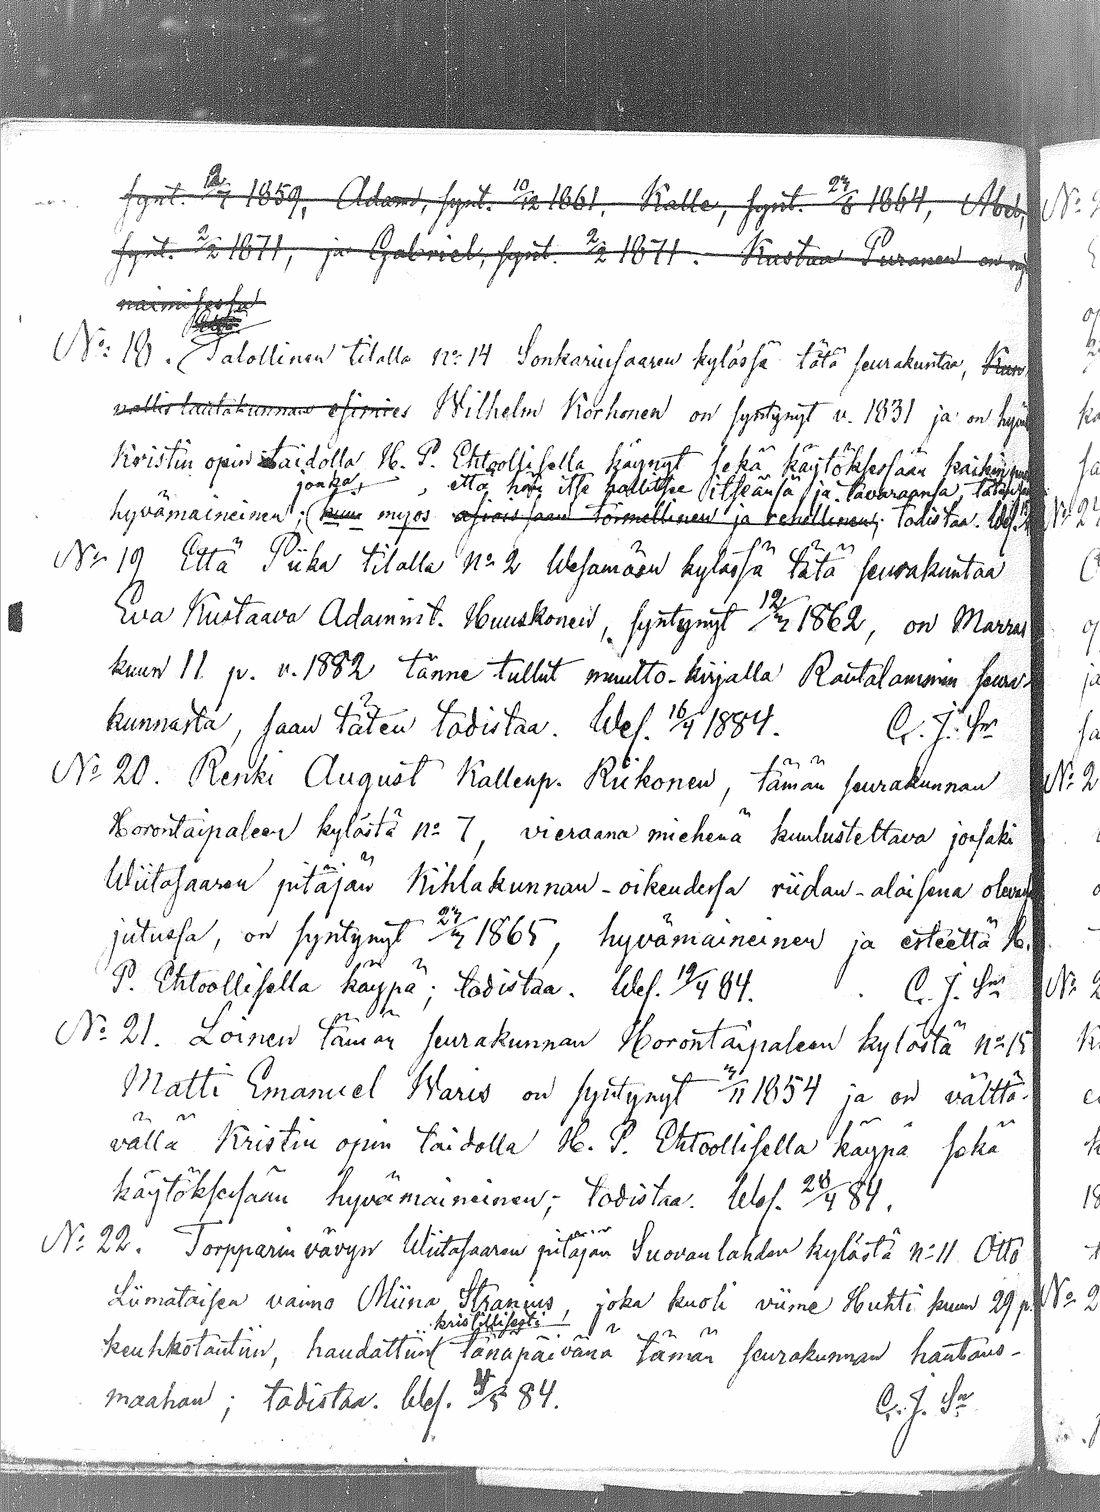 synt. 12/7 1859, Adam, synt. 10/12 1861, Kalle, synt. 27/8 1864, Abel,
synt. 2/2 1871, ja Gabriel, synt. 2/2 1871. Kustaa Puranen on
naimisessa
No: 18. Talollinen tilalla no: 14 Sonkarinsaaren kylässä tätä seurakuntaa, Kun
vallislautakunnan esimies Wilhelm Korhonen on syntynyt v. 1831 ja on hyvä
Kristin opin taidolla H. P. Ehtoollisella käynyt sekä käytöksessään kaikin
jonka, että hän itse hallitsee itseänsä ja tavaraansa, täten
hyvämaineinen; kuin myös asioissaan toimellinen ja rehellinen; todistaa. Wes.
No 19 Että Piika tilalla no 2 Wesamäen kylässä tätä seurakuntaa
Eva Kustaava Adamint. Huuskonen, syntynyt 12/7 1862, on Marras
kuun 11 p. v. 1882 tänne tullut muutto-kirjalla Rautalammin seura-
kunnasta, saan täten todistaa. Wes. 16/4 1884. C. J. Sn
No 20. Renki August Kallenp. Riikonen, tämän seurakunnan
Horontaipaleen kylästä no 7, vieraana miehenä kuulusteltava jossaki
Wiitasaaren pitäjän Kihlakunnan-oikeudessa riidan-alaisena olevassa
jutussa, on syntynyt 27/7 1865, hyvämaineinen ja esteettä H.
P. Ehtoollisella käypä; todistaa. Wes. 19/4 84. C. J. Sn
No 21. Loinen tämän seurakunnan Horontaipaleen kylästä no 15
Matti Emanuel Waris on syntynyt 7/11 1854 ja on välttä-
vällä Kristin opin taidolla H. P. Ehtoollisella käypä sekä
käytöksessään hyvämaineinen; todistaa. Wes. 28/4 84.
No 22. Torpparin vävyn Wiitasaaren pitäjän Suovanlahden kylästä no 11 Otto
Liimataisen vaimo Miina Stranius, joka kuoli viime Huhti kuun 29 p.
kristillisesti
keuhkotautiin, haudattiin tänäpäivänä tämän seurakunnan hautaus-
maahan; todistaa. Wes. 4/5 84. C. J. Sn